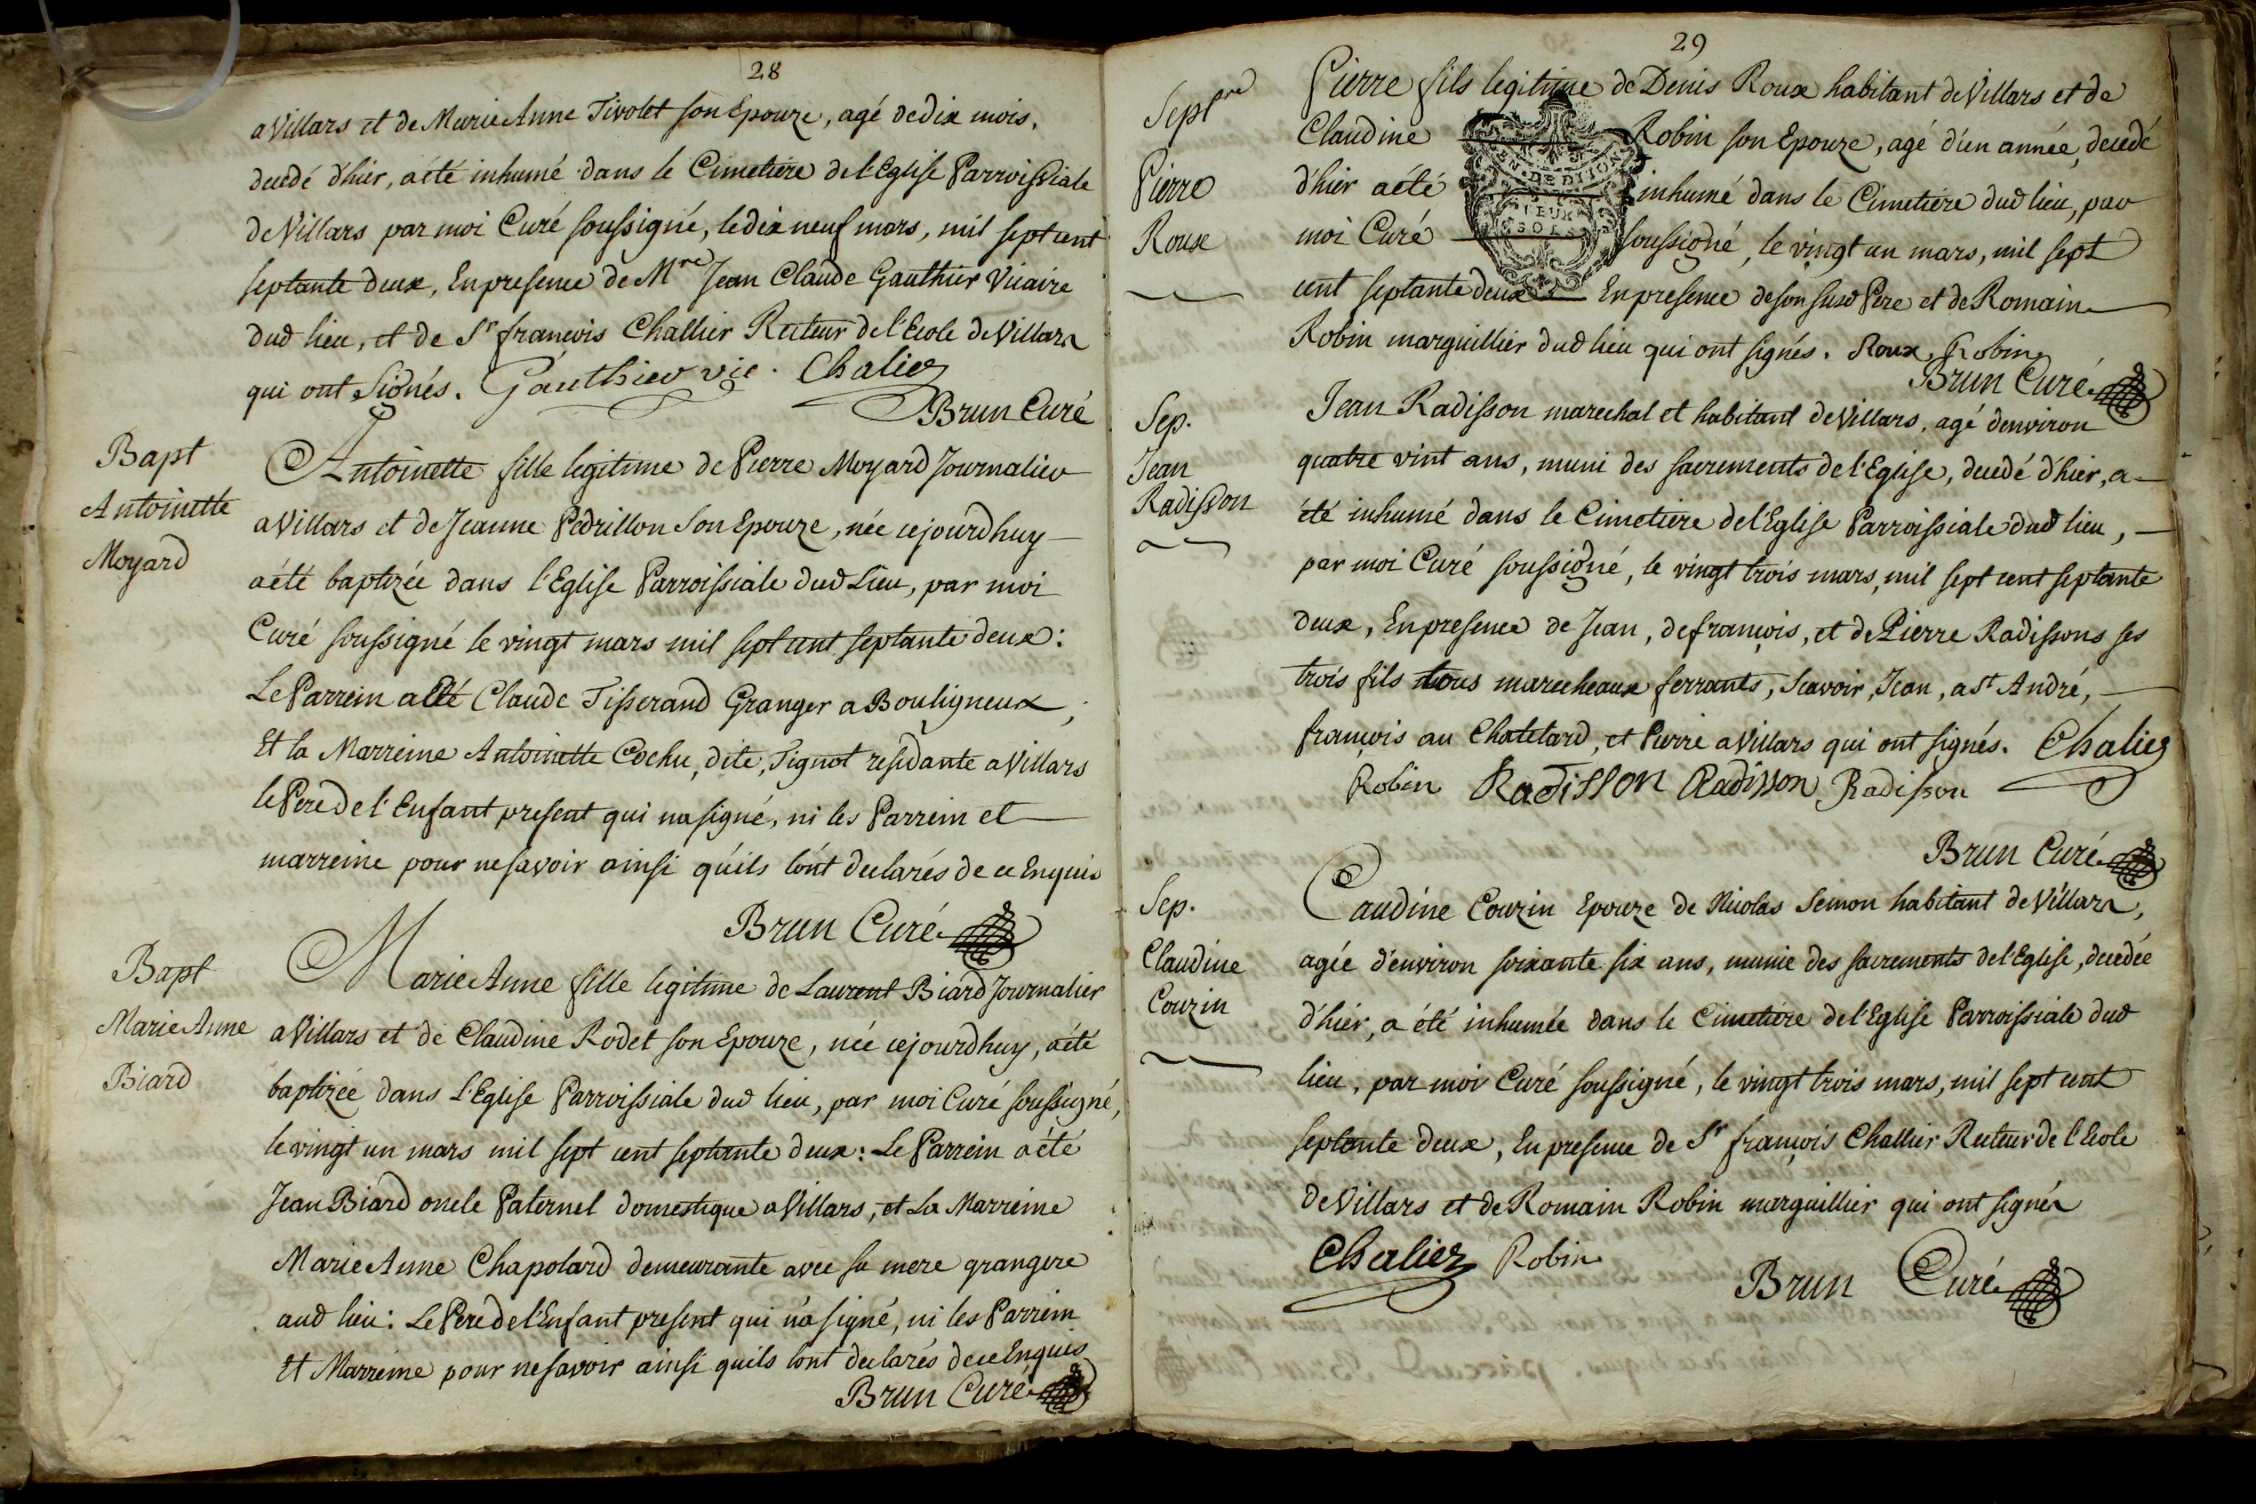 28
a Villars et de Marie Anne Tivolet son Epouze, agé de dix mois,
decedé d'hier, a été inhumé dans le Cimetiere de l'Eglise Parroissiale
de Villars par moi Curé soussigné, le dix neuf mars, mil sept cent
septante deux, En presence de Mre Jean Claude Gauthier Vicaire
dud lieu, et de Sr françois Challier Recteur de l'Ecole de Villars
qui ont signés. Gauthier vic. Chaliez
Brun Curé
Bapt
Antoinette
Moyard
Antoinette fille legitime de Pierre Moyard Journalier
a Villars et de Jeanne Pedrillon son Epouze, née cejourdhuy
a été baptizée dans l'Eglise Parroissiale dud Lieu, par moi
Curé soussigné le vingt mars mil sept cent septante deux:
Le Parrein a été Claude Tisserand Granger a Bouligneux,
Et la Marreine Antoinette Cochu, dite, Tignot residante a Villars
le Pere de l'Enfant present qui na signé, ni les Parrein et
marreine pour ne savoir ainsi qu'ils l'ont declarés de ce Enquis
Brun Curé
Bapt
Marie Anne
Biard
Marie Anne fille legitime de Laurent Biard Journalier
a Villars et de Claudine Rodet son Epouze, née cejourdhuy, a été
baptizée dans L'Eglise Parroissiale dud lieu, par moi Curé soussigné,
le vingt un mars mil sept cent septante deux: Le Parrein a été
Jean Biard oncle Paternel domestique a Villars, et La Marreine
Marie Anne Chapolard demeurante avec sa mere grangere
aud lieu: Le Pere de l'Enfant present qui n'a signé, ni les Parrein
Et Marreine pour ne savoir ainsi quils lont declarés de ce Enquis
Brun Curé
29
Septre
Pierre
Roux
Pierre fils legitime de Denis Roux habitant de Villars et de
Claudine Robin son Epouze, agé d'un année, decedé
d'hier a été inhumé dans le Cimetiere dud lieu, par
moi Curé soussigné, le vingt un mars, mil sept
cent septante deux En presence de son susd Pere et de Romain
Robin marguillier dud lieu qui ont signés. Roux, Robin
Brun Curé
GEN. DE DIJON
DEUX
SOLS
Sep.
Jean
Radisson
Jean Radisson marechal et habitant de Villars, agé denviron
quatre vint ans, muni des sacrements de l'Eglise, decedé d'hier, a
été inhumé dans le Cimetiere de l'Eglise Parroissiale dud lieu,
par moi Curé soussigné, le vingt trois mars, mil sept cent septante
deux, En presence de Jean, de françois, et de Pierre Radissons ses
trois fils tous marecheaux ferrants, Scavoir, Jean, a St André,
françois au Chatelard, et Pierre a Villars qui ont signés. Chaliez
Robin Radisson Radisson Radisson
Brun Curé
Sep.
Claudine
Couzin
Caudine Couzin Epouze de Nicolas Semon habitant de Villars,
agée d'environ soixante six ans, munie des sacrements de l'Eglise, decedée
d'hier, a été inhumée dans le Cimetiere de l'Eglise Parroissiale dud
lieu, par moi Curé soussigné, le vingt trois mars, mil sept cent
septante deux, En presence de Sr françois Challier Recteur de l'Ecole
de Villars et de Romain Robin marguillier qui ont signés
Chaliez Robin
Brun Curé